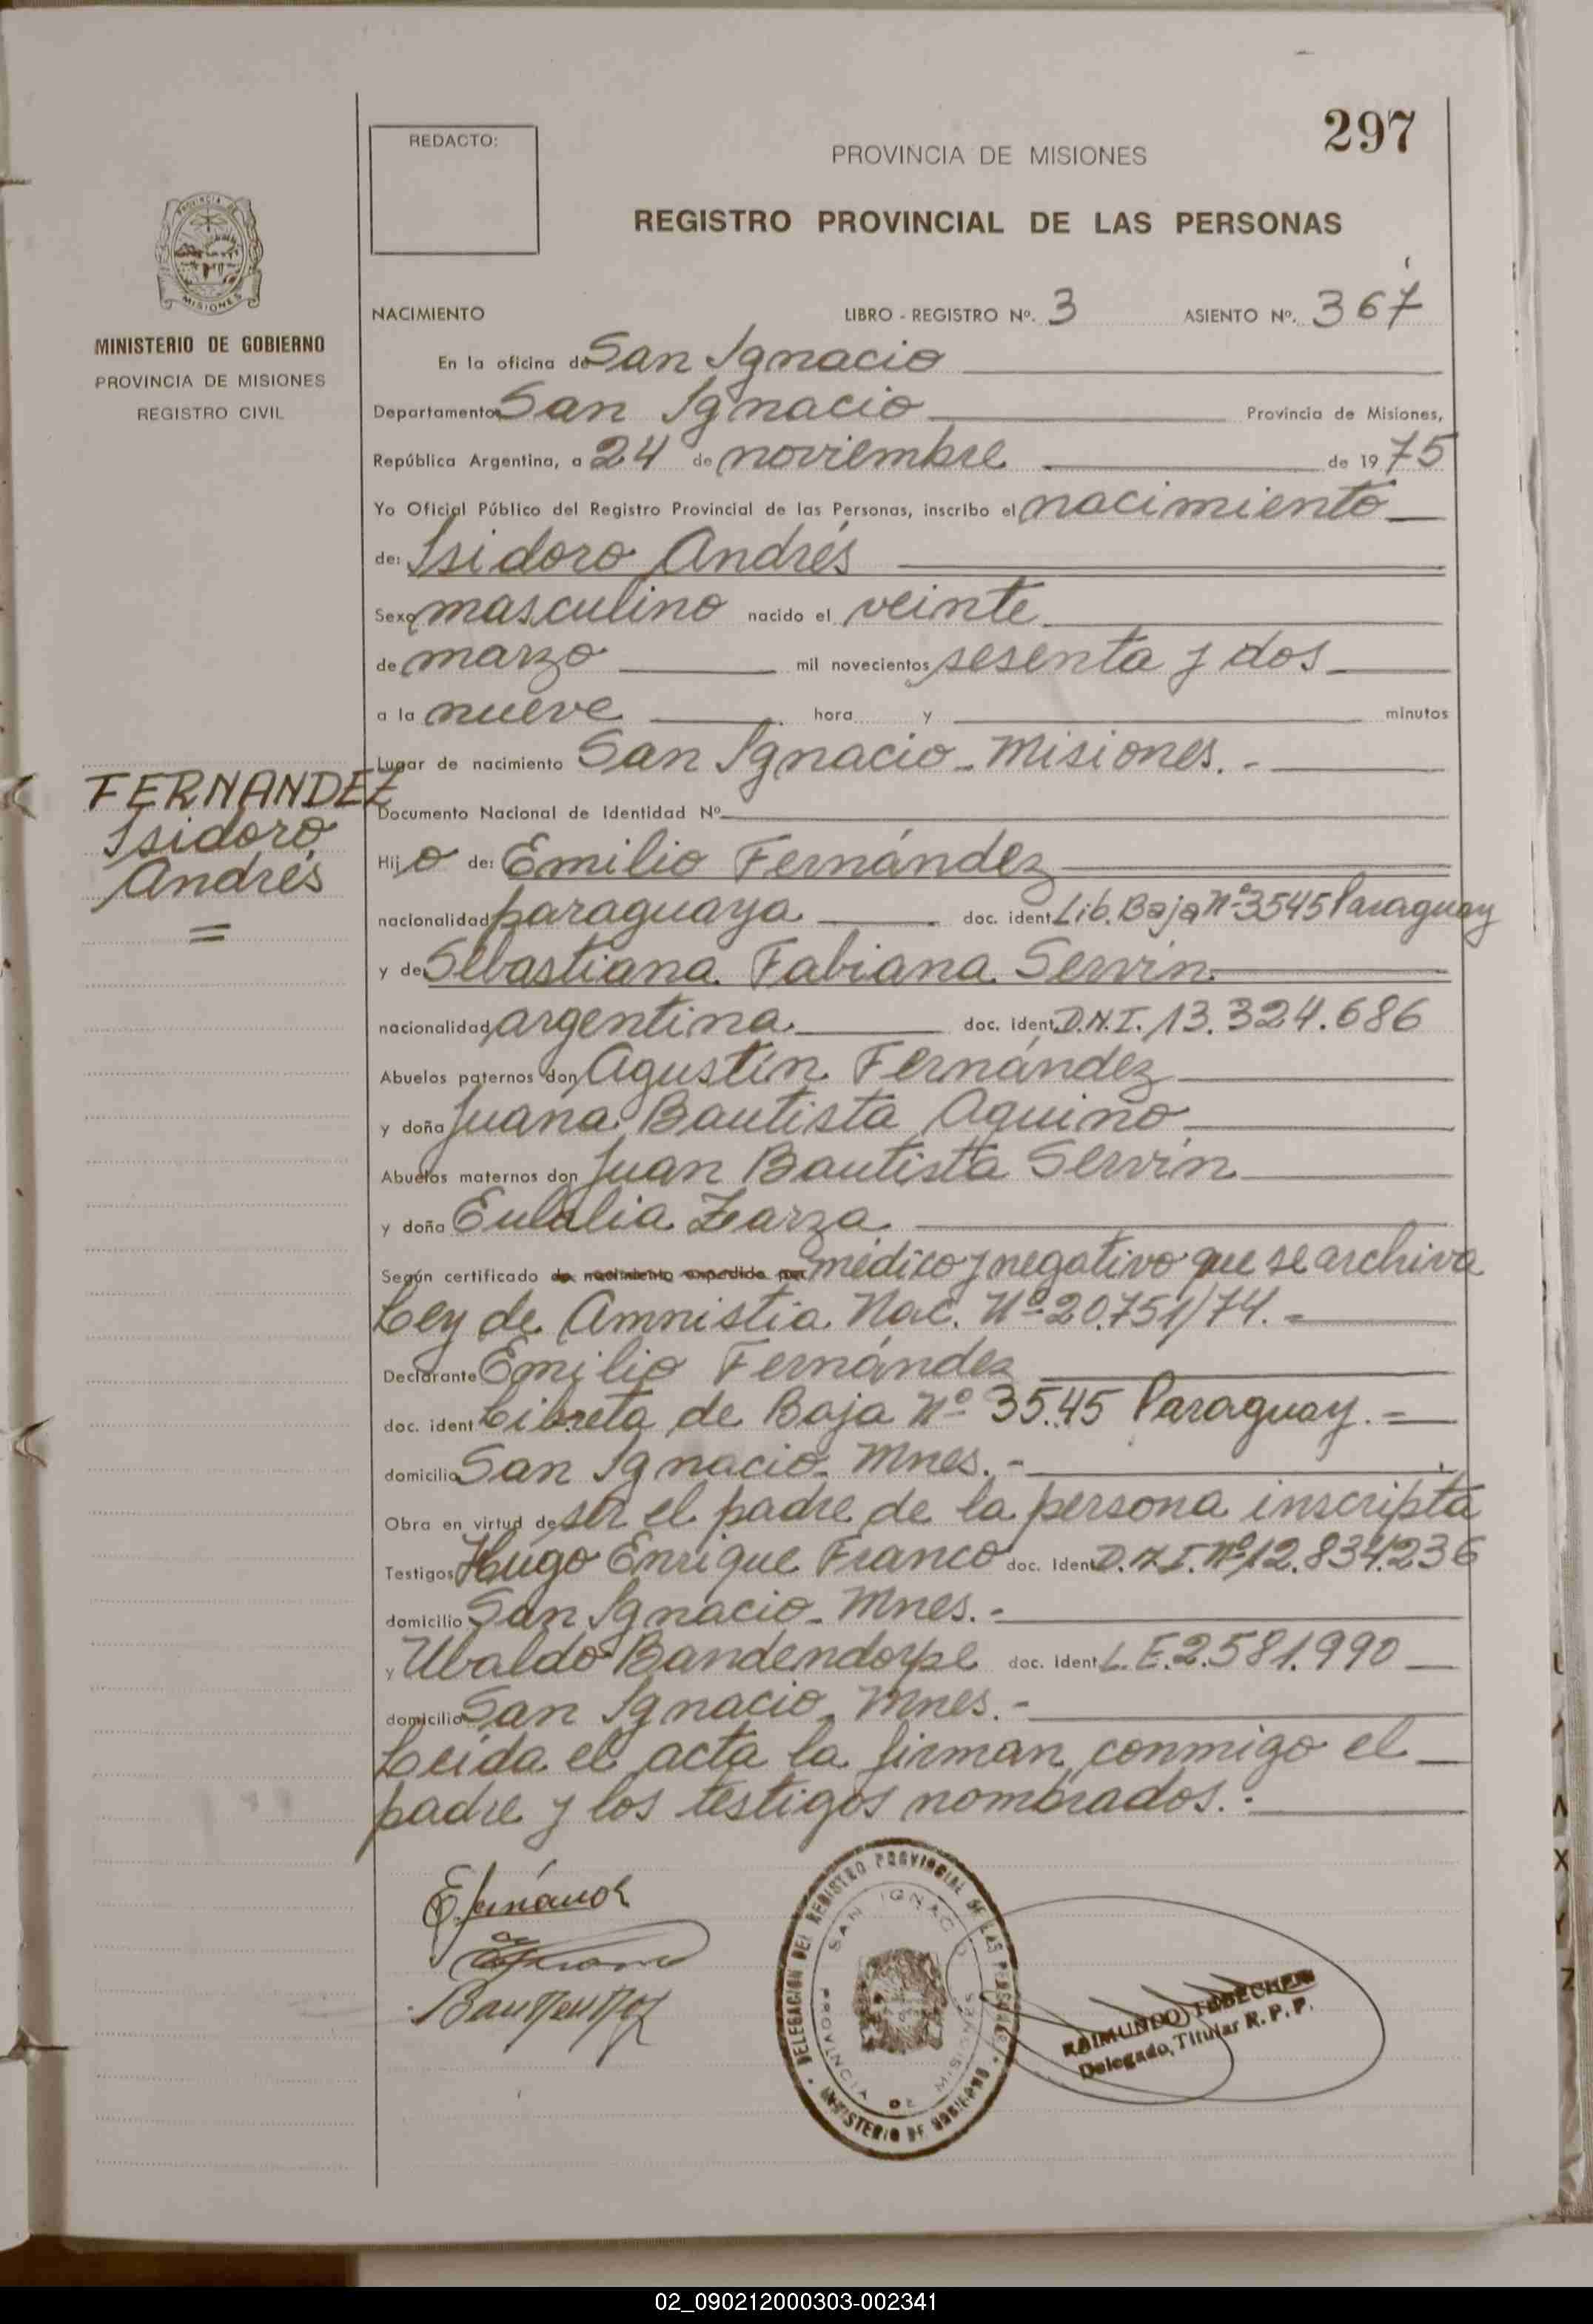 297
REDACTO:
PROVINCIA DE MISIONES
REGISTRO PROVINCIAL DE LAS PERSONAS
PROVINCIA DE
MISIONES
MINISTERIO DE GOBIERNO
PROVINCIA DE MISIONES
REGISTRO CIVIL
NACIMIENTO LIBRO - REGISTRO Nº. 3 ASIENTO Nº. 367
En la oficina de San Ignacio
Departamento San Ignacio Provincia de Misiones,
República Argentina, a 24 de noviembre de 1975
Yo Oficial Público del Registro Provincial de las Personas, inscribo el nacimiento
de: Isidoro Andrés
Sexo masculino nacido el veinte
de marzo mil novecientos sesenta y dos
a la nueve hora y minutos
Lugar de nacimiento San Ignacio - Misiones. -
FERNANDEZ
Isidoro
Andrés
=
Documento Nacional de Identidad Nº
Hijo de: Emilio Fernández
nacionalidad paraguaya doc. ident. Lib. Baja Nº 3545 Paraguay
y de Sebastiana Fabiana Servín
nacionalidad argentina doc. ident. D.N.I. 13.324.686
Abuelos paternos don Agustín Fernández
y doña Juana Bautista Aquino
Abuelos maternos don Juan Bautista Servín
y doña Eulalia Zarza
Según certificado de nacimiento expedido por médico y negativo que se archiva
Ley de Amnistia Nac. Nº 20.751/74. =
Declarante Emilio Fernández
doc. ident Libreta de Baja Nº 3545 Paraguay. =
domicilio San Ignacio - Mnes. -
Obra en virtud de ser el padre de la persona inscripta
Testigos Hugo Enrique Franco doc. Ident. D.N.I. Nº 12.834.236
domicilio San Ignacio - Mnes. -
y Ubaldo Bandendorpe doc. ident L.E. 2.581.990
domicilio San Ignacio - Mnes. -
Leída el acta la firman conmigo el
padre y los testigos nombrados. -
DELEGACION DEL REGISTRO PROVINCIAL DE LAS PERSONAS
SAN IGNACIO
PROVINCIA DE MISIONES
MINISTERIO DE GOBIERNO
RAIMUNDO
Delegado, Titular R. P. P.
02_090212000303-002341